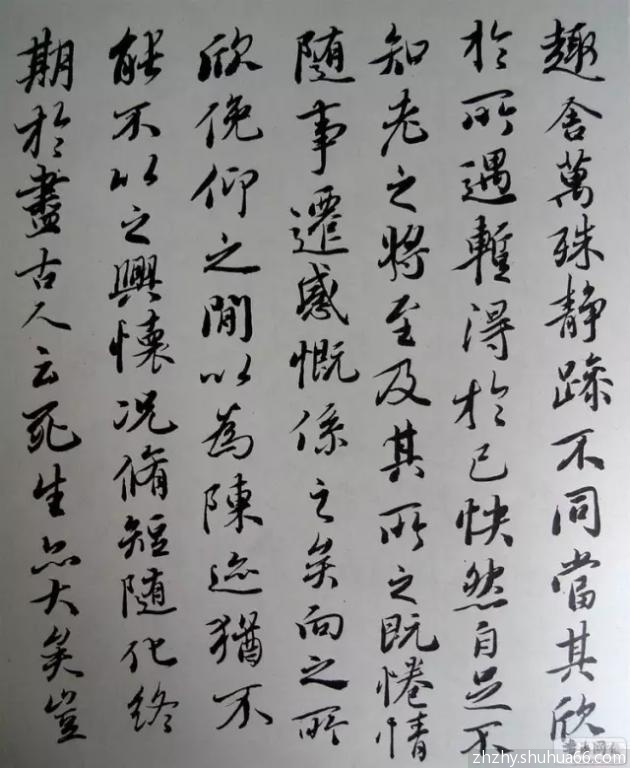 趣舍萬殊静躁不同當其欣
於所遇暫得於己快然自足不
知老之將至及其所之既惓情
隨事遷感慨係之矣向之所
欣俛仰之間以為陳迹猶不
能不以之興懷况脩短隨化終
期於盡古人云死生亦大矣豈
zhzhy.shuhua66.com